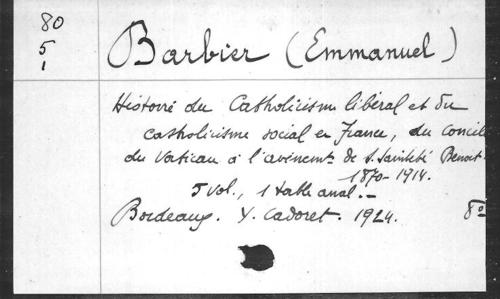 80
5
1
Barbier (Emmanuel)
Histoire du Catholicisme libéral et du
catholicisme social en France, du Concile
du Vatican à l'avènemt de S. Sainteté Benoit
1870-1914.
5 vol., 1 table anal. -
Bordeaux. Y. Cadoret. 1924. 8º